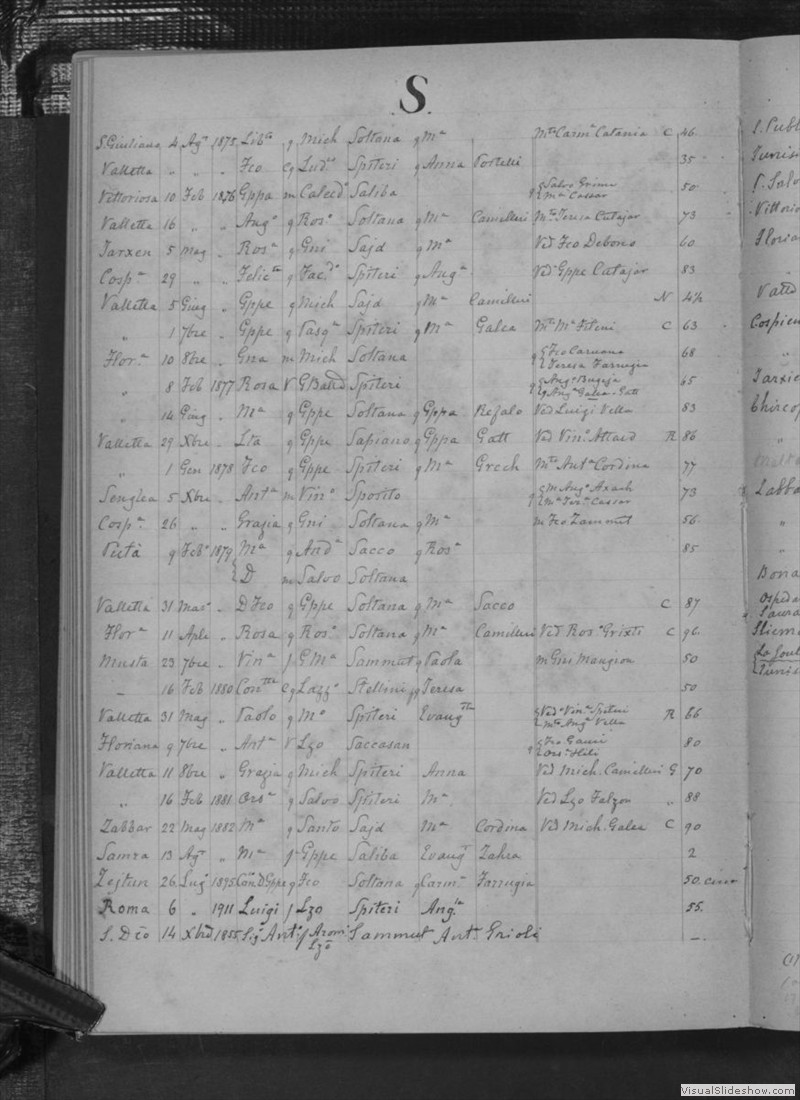 S.
S. Giuliano 4 Agº 1875 Libta g Mich Soltana g Mª Mto Carmª Catania C 46
Valletta " " " Fco Cg Ludª Spiteri g Anna Portelli 35
Vittoriosa 10 Feb 1876 Gppa m Calced Saliba g Salvo Grima Mª Cassar 50
Valletta 16 " " Angº g Rosº Soltana g Mª Camilleri Mto Teresa Cutajar 73
Tarxen 5 Mag " Rosª g Gni Sajd g Mª Ved Fco Debono 60
Cospª 29 " " Felicta g Spiteri g Angª Ved Gppe Cutajar 83
Valletta 5 Giug " Gppe g Mich Sajd g Mª Camilleri N 4½
" 1 7bre " Gppe g Pasqª Spiteri g Mª Galea Mto Mª C 63
Florª 10 8bre " Gna m Mich Soltana g Fco Caruana Teresa Farrugia 68
" 8 Feb 1877 Rosa V G Battd Spiteri g Angº Bugeja g Angª Galea Gatt 65
" 14 Giug " Mª g Gppe Soltana g Gppa Refalo Ved Luigi Vella 83
Valletta 29 Xbre " g Gppe Sapiano g Gppa Gatt Ved Vinº Attard R 86
" 1 Gen 1878 Fco g Gppe Spiteri g Mª Grech Mto Antª Cordina 77
Senglea 5 Xbre " Antª m Vinº Sposito g m Angº Axach 73
Cospª 26 " " Grazia g Gni Soltana g Mª m Fco Zammut 56
9 Febº 1879 Mª g Andª Sacco g Rosª 85
D m Salvo Soltana
Valletta 31 Marº " D Fco g Gppe Soltana g Mª Sacco C 87
Florª 11 Aple " Rosa g Rosº Soltana g Mª Camilleri Ved Rosº Grixti C 96.
Musta 23 7bre " Vinª f G Mª Sammut g Paola m Gni Mangion 50
— 16 Feb 1880 Contta Cg Lazzº Stellini g Teresa 50
Valletta 31 Mag " Paolo g Mº Spiteri Evangta Vedº Vinª Spiteri Mto Angª Vella R 66
Floriana 9 7bre " Antª V Lzo Saccasan g Fco Gauci Orsª Heli 80
Valletta 11 8bre " Grazia g Mich Spiteri Anna Ved Mich. Camilleri G 70
" 16 Feb 1881 Orsª g Salvo Spiteri Mª Ved Lzo Falzon " 88
Zabbar 22 Mag 1882 Mª g Santo Sajd Mª Cordina Ved Mich. Galea C 90
Samra 13 Agº " Mª f Gppe Saliba Evangª Zahra 2
Zejtun 26 Lugº 1895 Can. D Gppe g Fco Soltana g Carmª Farrugia 50. circa
Roma 6 " 1911 Luigi f Lzo Spiteri Angla 55.
S. Dco 14 Xbre 1855 Sigª Antª f Lzo Sammut Antª Grioli —
S. Publ
Tunisi
S. Salv
Vittorio
Floria
Vall
Cospicu
"
Tarxie
Chircop
"
Malta
Zabba
"
"
Borma
Osped
Saura
Sliema
La Goul
Tunisi
VisualSlideshow.com